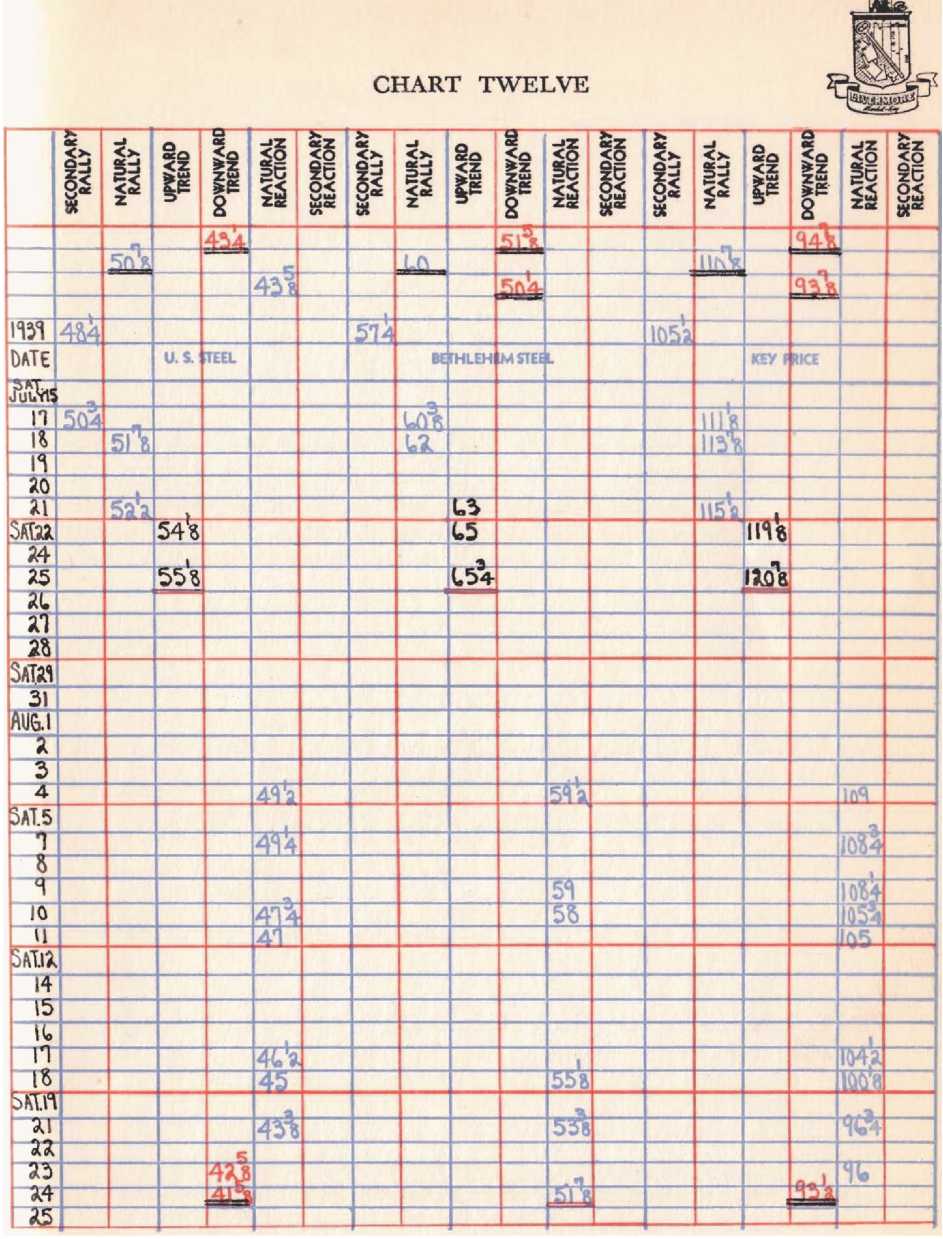 LIVERMORE
Market-Key
CHART TWELVE
SECONDARY RALLY NATURAL RALLY UPWARD TREND DOWNWARD TREND NATURAL REACTION SECONDARY REACTION SECONDARY RALLY NATURAL RALLY UPWARD TREND DOWNWARD TREND NATURAL REACTION SECONDARY REACTION SECONDARY RALLY NATURAL RALLY UPWARD TREND DOWNWARD TREND NATURAL REACTION SECONDARY REACTION
43 1/4 51 5/8 94 7/8
50 7/8 60 110 7/8
43 5/8 50 1/4 93 7/8
1939 48 1/4 57 1/4 105 1/2
DATE U. S. STEEL BETHLEHEM STEEL KEY PRICE
SAT. JULY 15
17 50 3/4 60 3/8 111 1/8
18 51 7/8 62 113 7/8
19
20
21 52 1/2 63 115 1/2
SAT.22 54 1/8 65 119 1/8
24
25 55 1/8 65 3/4 120 7/8
26
27
28
SAT.29
31
AUG.1
2
3
4 49 1/2 59 1/2 109
SAT.5
7 49 1/4 108 3/4
8
9 59 108 1/4
10 47 3/4 58 105 3/4
11 47 105
SAT.12
14
15
16
17 46 1/2 104 1/2
18 45 55 1/8 100 1/8
SAT.19
21 43 3/8 53 3/8 96 3/4
22
23 42 5/8 96
24 41 5/8 51 7/8 93 1/2
25